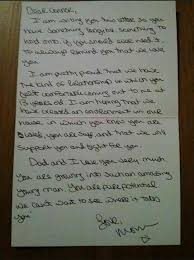 Dear Connor,
I am writing you this letter so you
have something tangible, something to
hold onto if you should ever need it,
to always remind you that we love
you.
I am pretty proud that we have
the kind of relationship in which you
feel comfortable coming out to me at
13 years old. I am hoping that we
have created an environment in our
house in which you know you are
loved, you are safe and that we will
support you and fight for you.
Dad and I love you very much
you are growing into such an amazing
young man. You are pure potential
we can't wait to see where it takes
you.
Love,
Mom